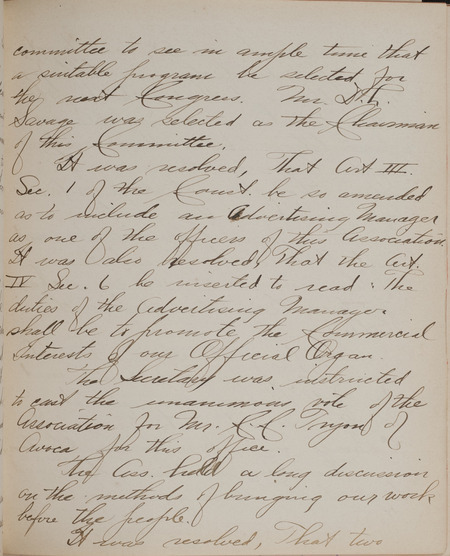 committee to see in ample time that
a suitable program be selected for
the next Congress. Mr. D.T.
Savage was selected as the Chairman
of this Committee.
It was resolved, That Art III.
Sec. 1 of the Const. be so amended
as to include an Advertising Manager
as one of the officers of this Association.
It was also resolved That the Art.
IV Sec. 6 be inserted to read: The
duties of the Advertising Manager
shall be to promote the Commercial
Interests of our Official Organ.
The Secretary was instructed
to cast the unanimous vote of the
Association for Mr. C.C. Tryon of
Avoca for this office.
The Ass. held a long discussion
on the methods of bringing our work
before the people.
It was resolved, That two